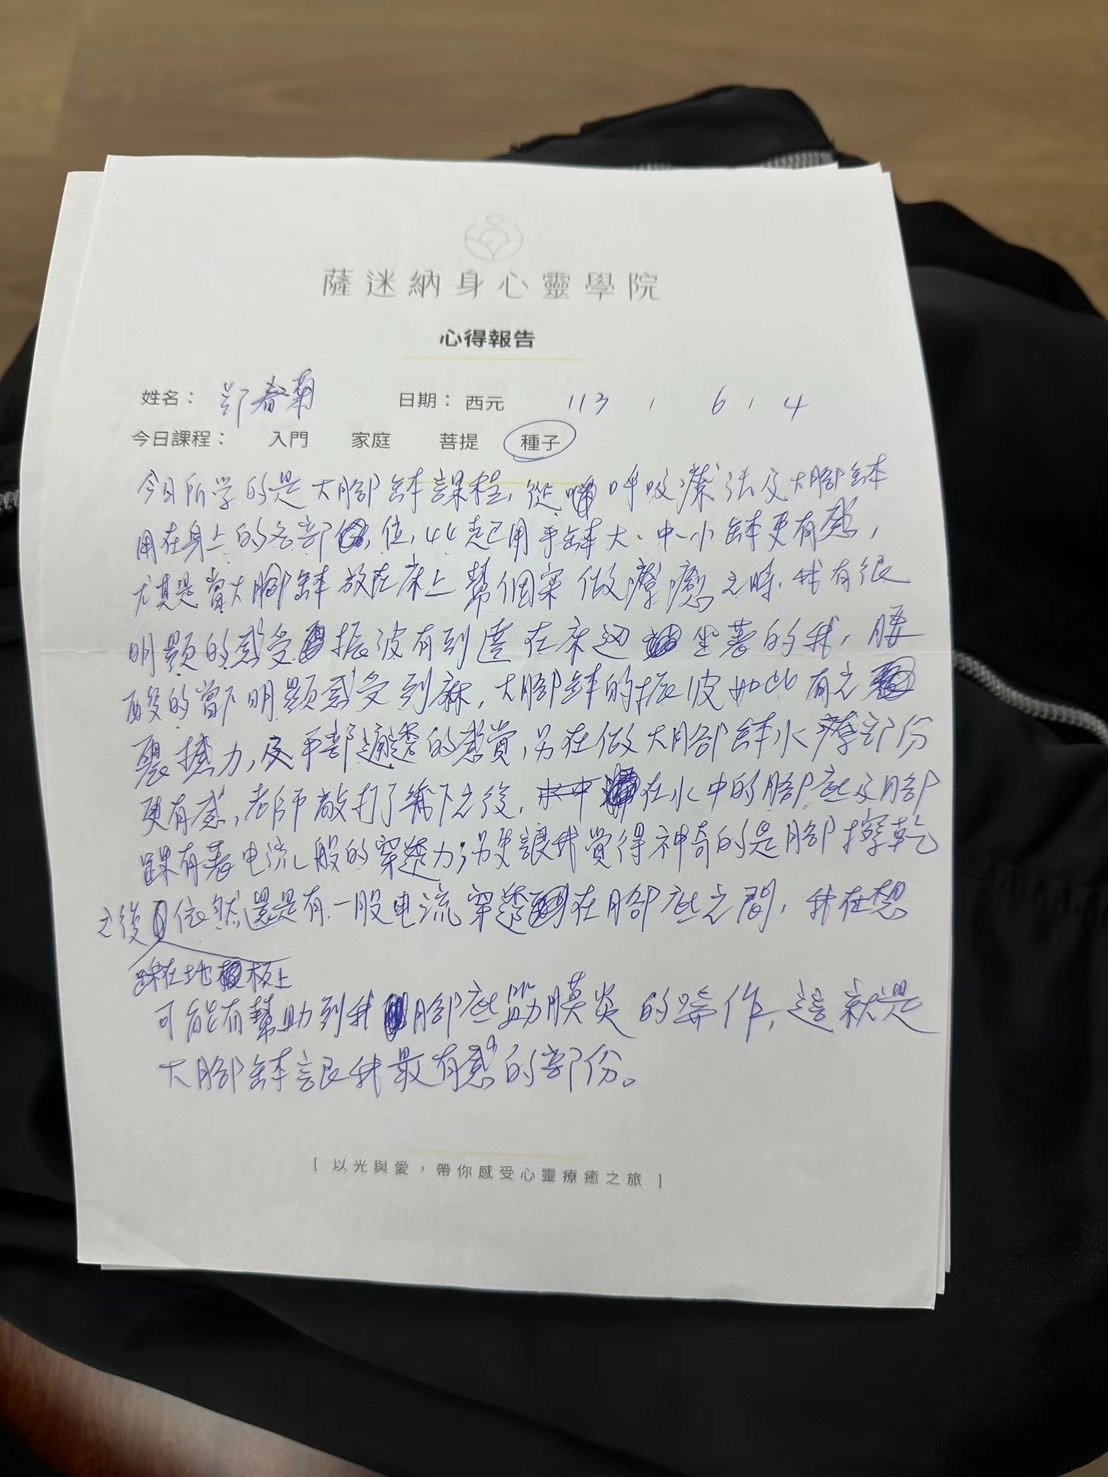 薩迷納身心靈學院
心得報告
姓名： 鄧春菊 日期： 西元 113 / 6 / 4
今日課程： 入門 家庭 菩提 種子
今日所学的是大腳缽課程，從呼吸療法及大腳缽
用在身上的各部位，比起用手缽大、中、小缽更有感，
尤其是當大腳缽放在床上幫個案做療癒之時，我有很
明顯的感受振波有到達在床边坐著的我，腰
酸的當下明顯感受到麻，大腳缽的振波如此有之
震撼力，及平部通透的感覺，另在做大腳缽水療部份
更有感，老師敲打了幾下之後，在水中的腳底及腳
踝有著电流般的穿透力；另更讓我覺得神奇的是腳擦乾
之後依然還是有一股电流穿透在腳底之間，我在想
踩在地板上
可能有幫助到我腳底筋膜炎的條作，這就是
大腳缽讓我最有感的部份。
［ 以光與愛，帶你感受心靈療癒之旅 ］